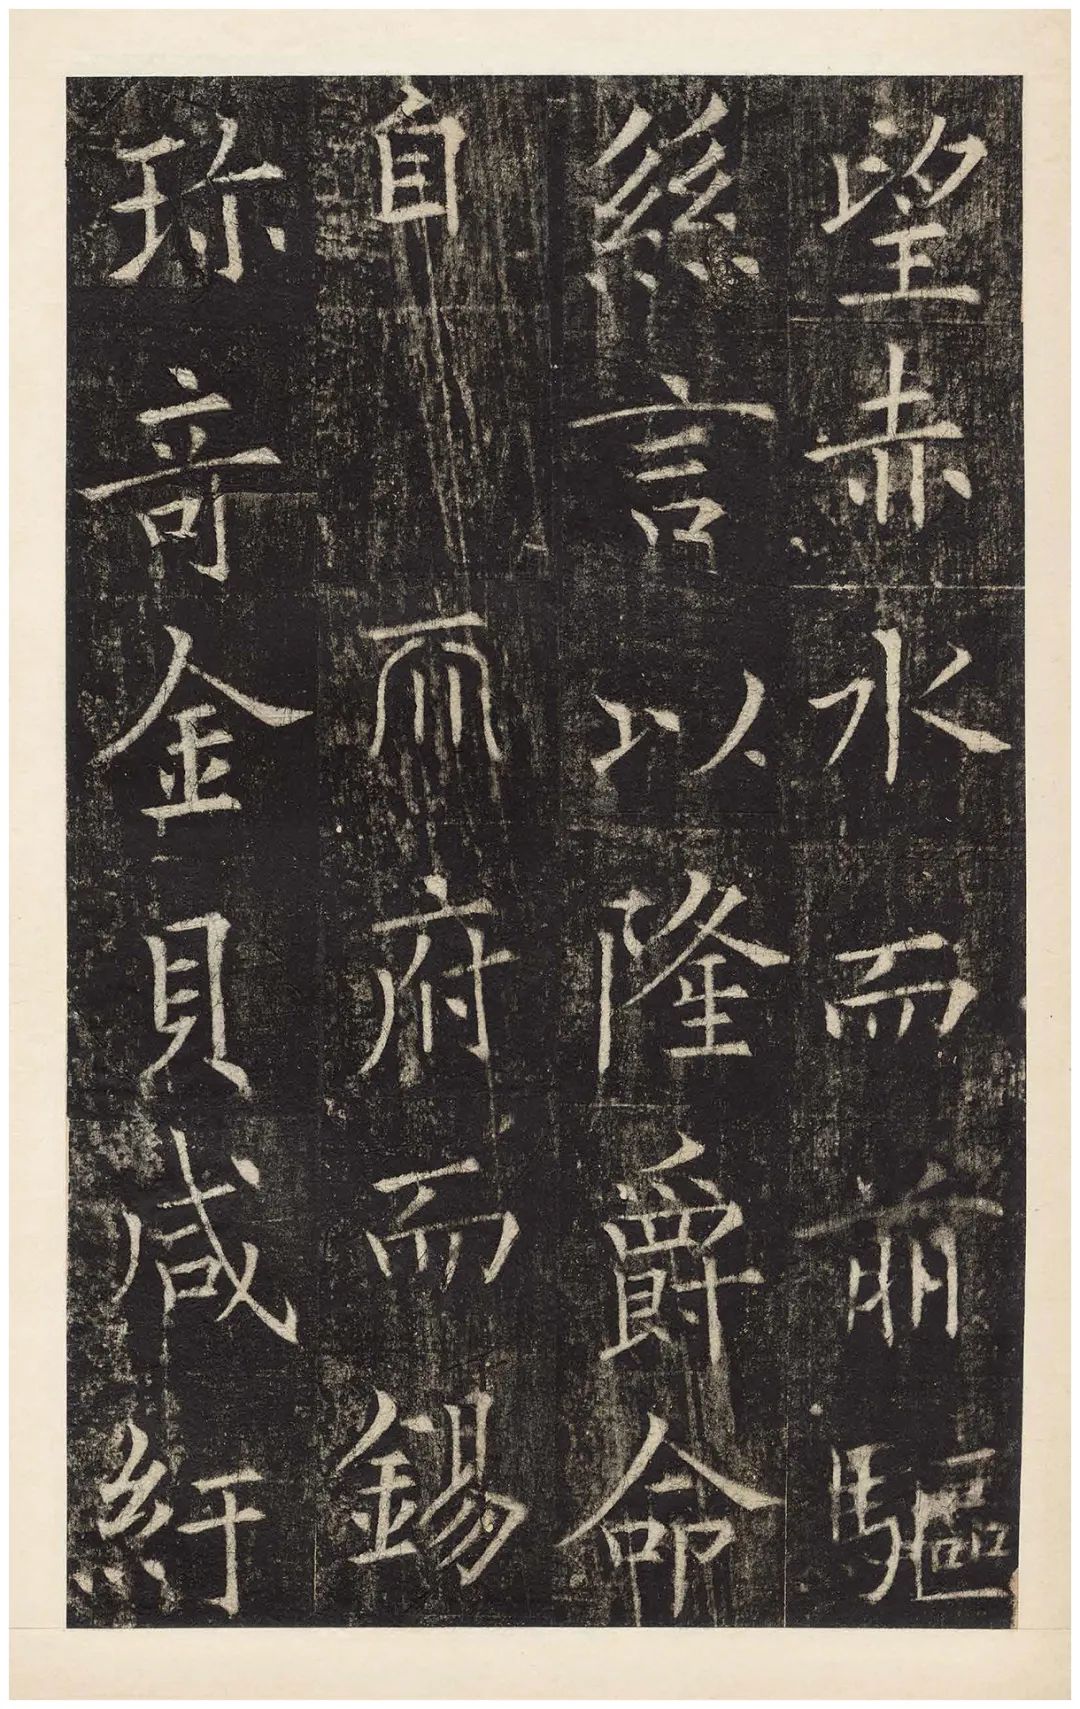 望赤水而前驅
絲言以隆爵命
自天府而錫
珎竒金貝咸紆